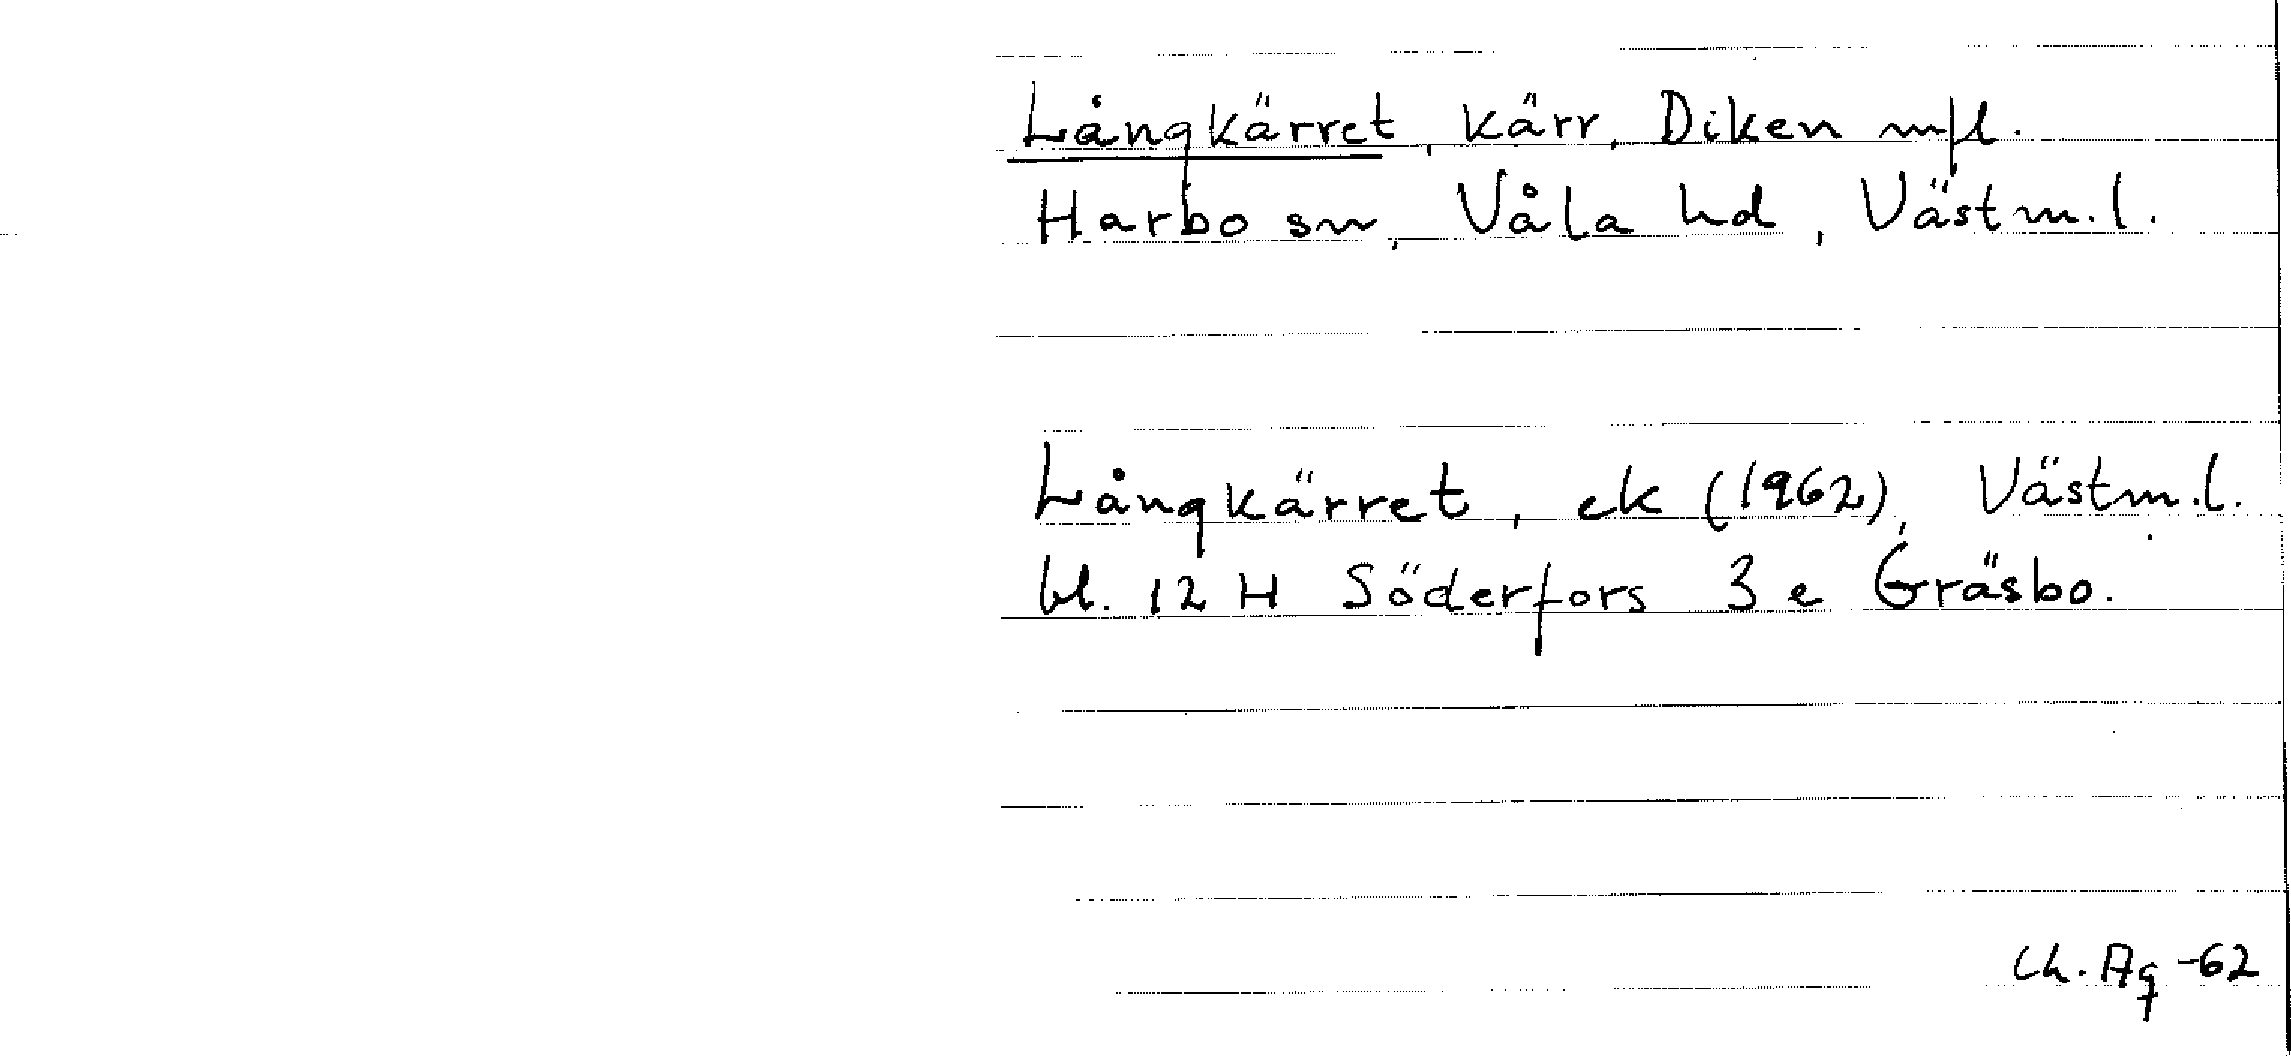 Långkärret, kärr, Diken mfl.
Harbo sn, Våla hd, Västm.l.
Långkärret, ek (1962), Västm.l.
bl. 12 H Söderfors 3 e Gräsbo.
Ch. Ag -62